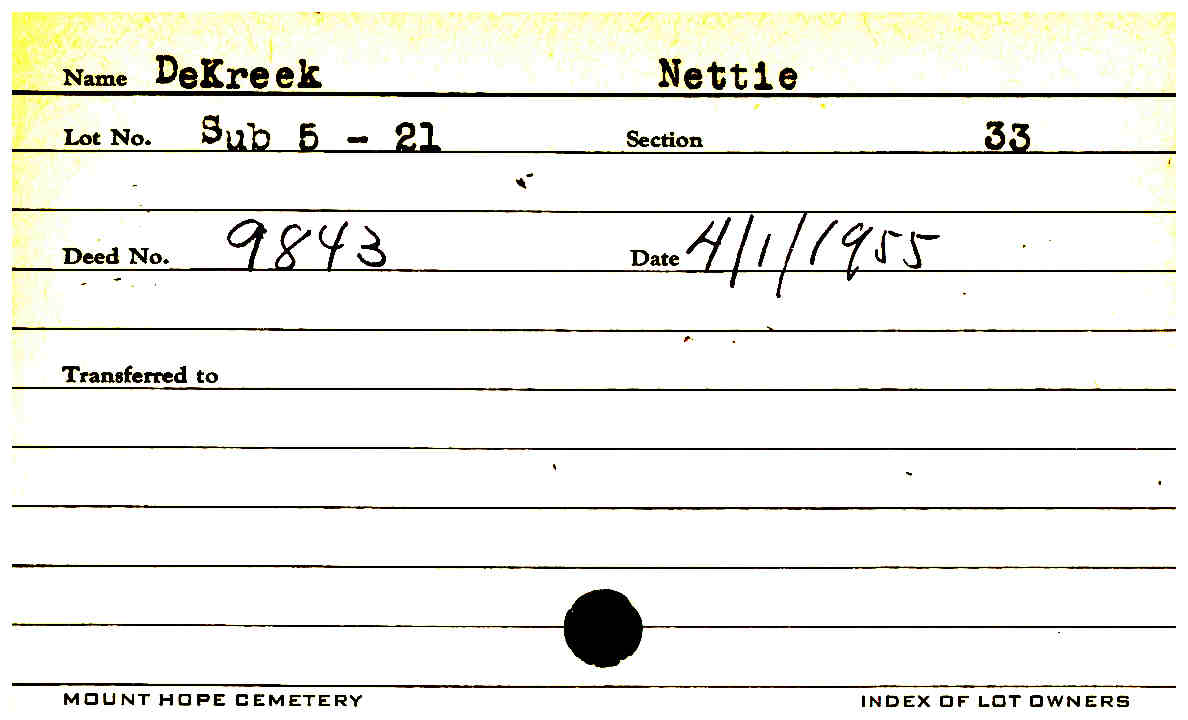 Name DeKreek Nettie
Lot No. Sub 5 - 21 Section 33
Deed No. 9843 Date 4/1/1955
Transferred to
MOUNT HOPE CEMETERY INDEX OF LOT OWNERS